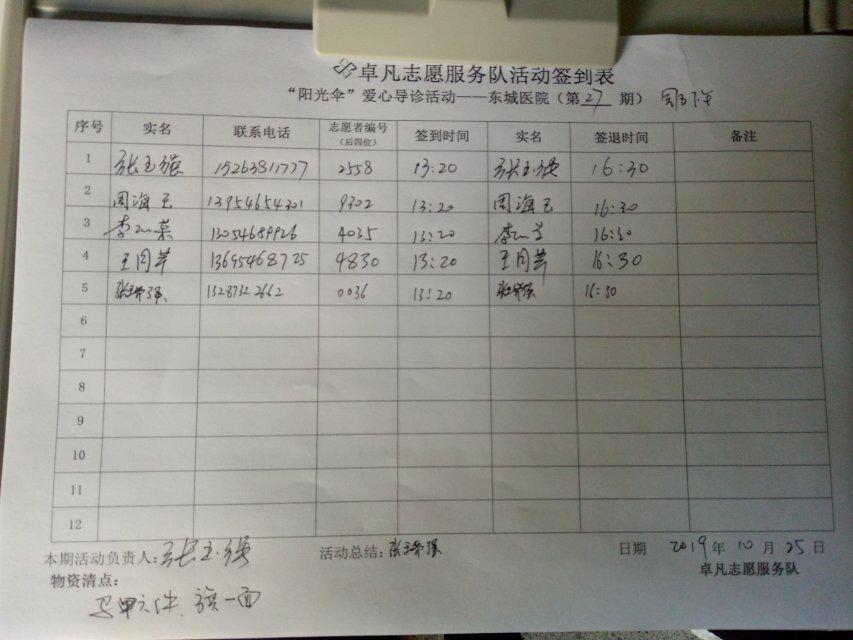 卓凡志愿服务队活动签到表
“阳光伞”爱心导诊活动——东城医院（第27期） 周五下午
序号 实名 联系电话 志愿者编号（后四位） 签到时间 实名 签退时间 备注
1 张玉强 15263811777 2558 13:20 张玉强 16:30
2 周海玉 13954654301 9302 13:20 周海玉 16:30
3 李 菜 13054689926 4035 13:20 李 16:30
4 王同苹 13695468725 4830 13:20 王同苹 16:30
5 13287322662 0036 13:20 16:30
6
7
8
9
10
11
12
本期活动负责人：张玉强 活动总结： 日期 2019年10月25日
物资清点： 卓凡志愿服务队
马甲六件、旗一面